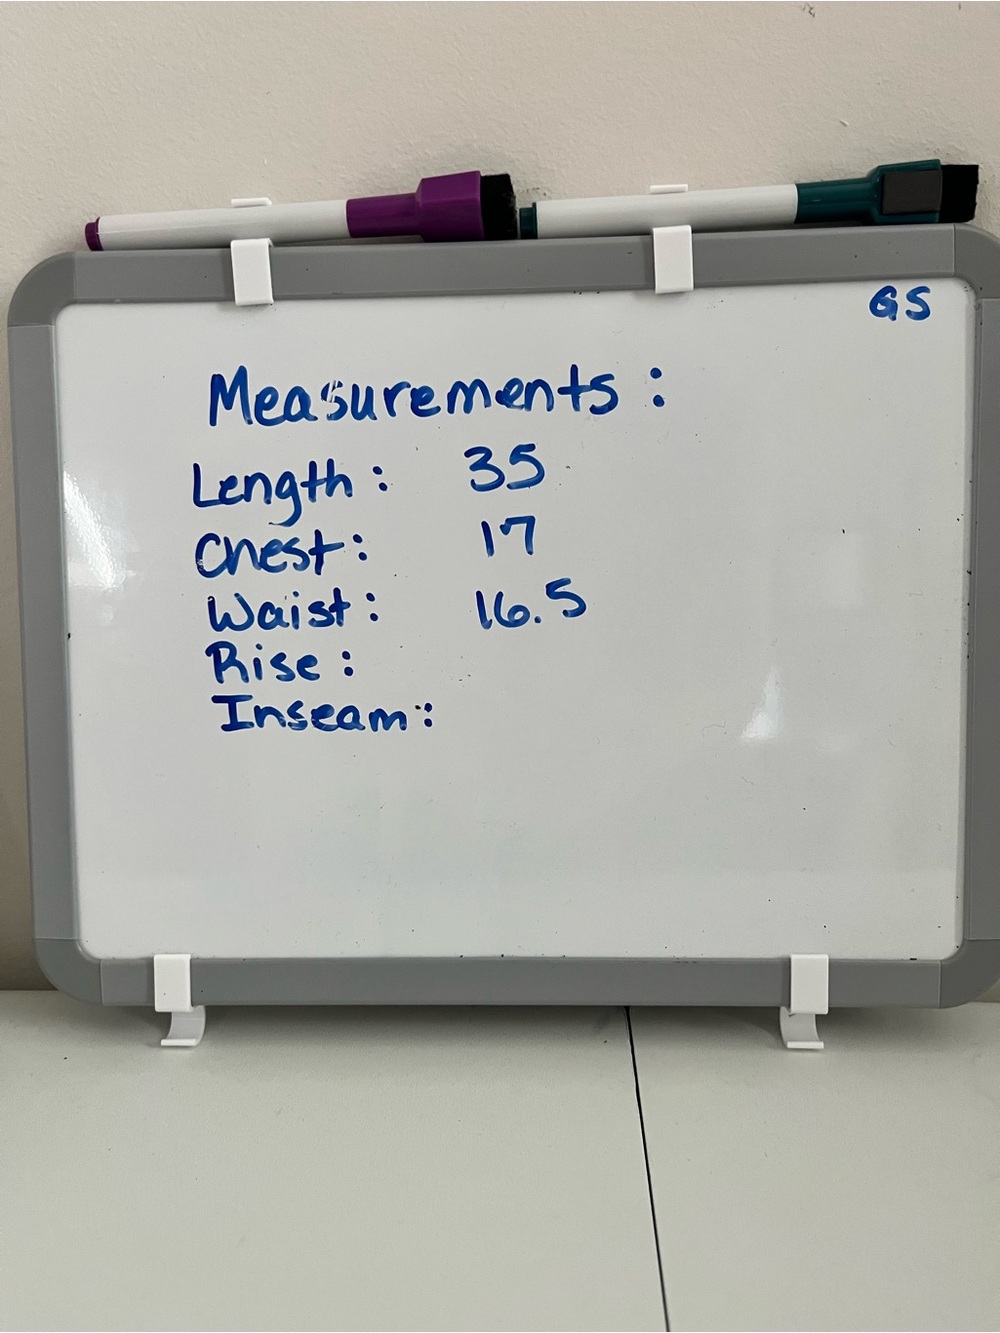 GS
Measurements:
Length: 35
Chest: 17
Waist: 16.5
Rise:
Inseam: